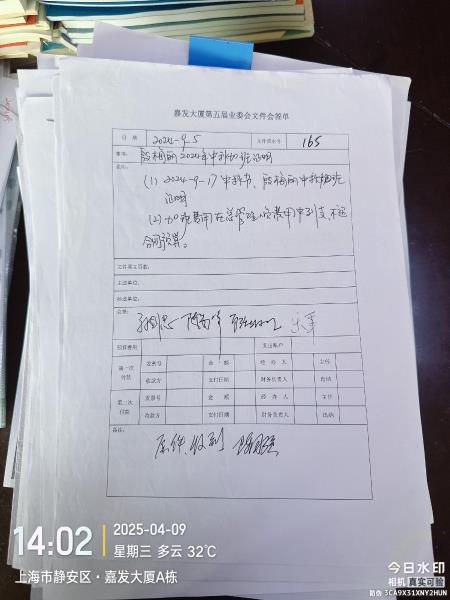 嘉发大厦第五届业委会文件会签单
日 期 2024-9-5 文件流水号 165
事项:殷梅丽2024年中秋加班证明
依况:
(1) 2024-9-17中秋节,殷梅丽中秋加班
证明
(2) 加班费用在总管理费用中列支,不超
合同预算。
文件英文页数:
主送单位:
抄送单位:
会签:
预算费用 支出账户
第一次付款 发票号 金 额 经 办 人 主任
收款方 支付日期 财务负责人 出纳
第二次付款 发票号 金 额 经 办 人 主任
收款方 支付日期 财务负责人 出纳
备注:
原件收到
14:02 2025-04-09
星期三 多云 32℃
上海市静安区·嘉发大厦A栋
今日水印
相机 真实可验
防伪 3CA9X31XNY2HUN